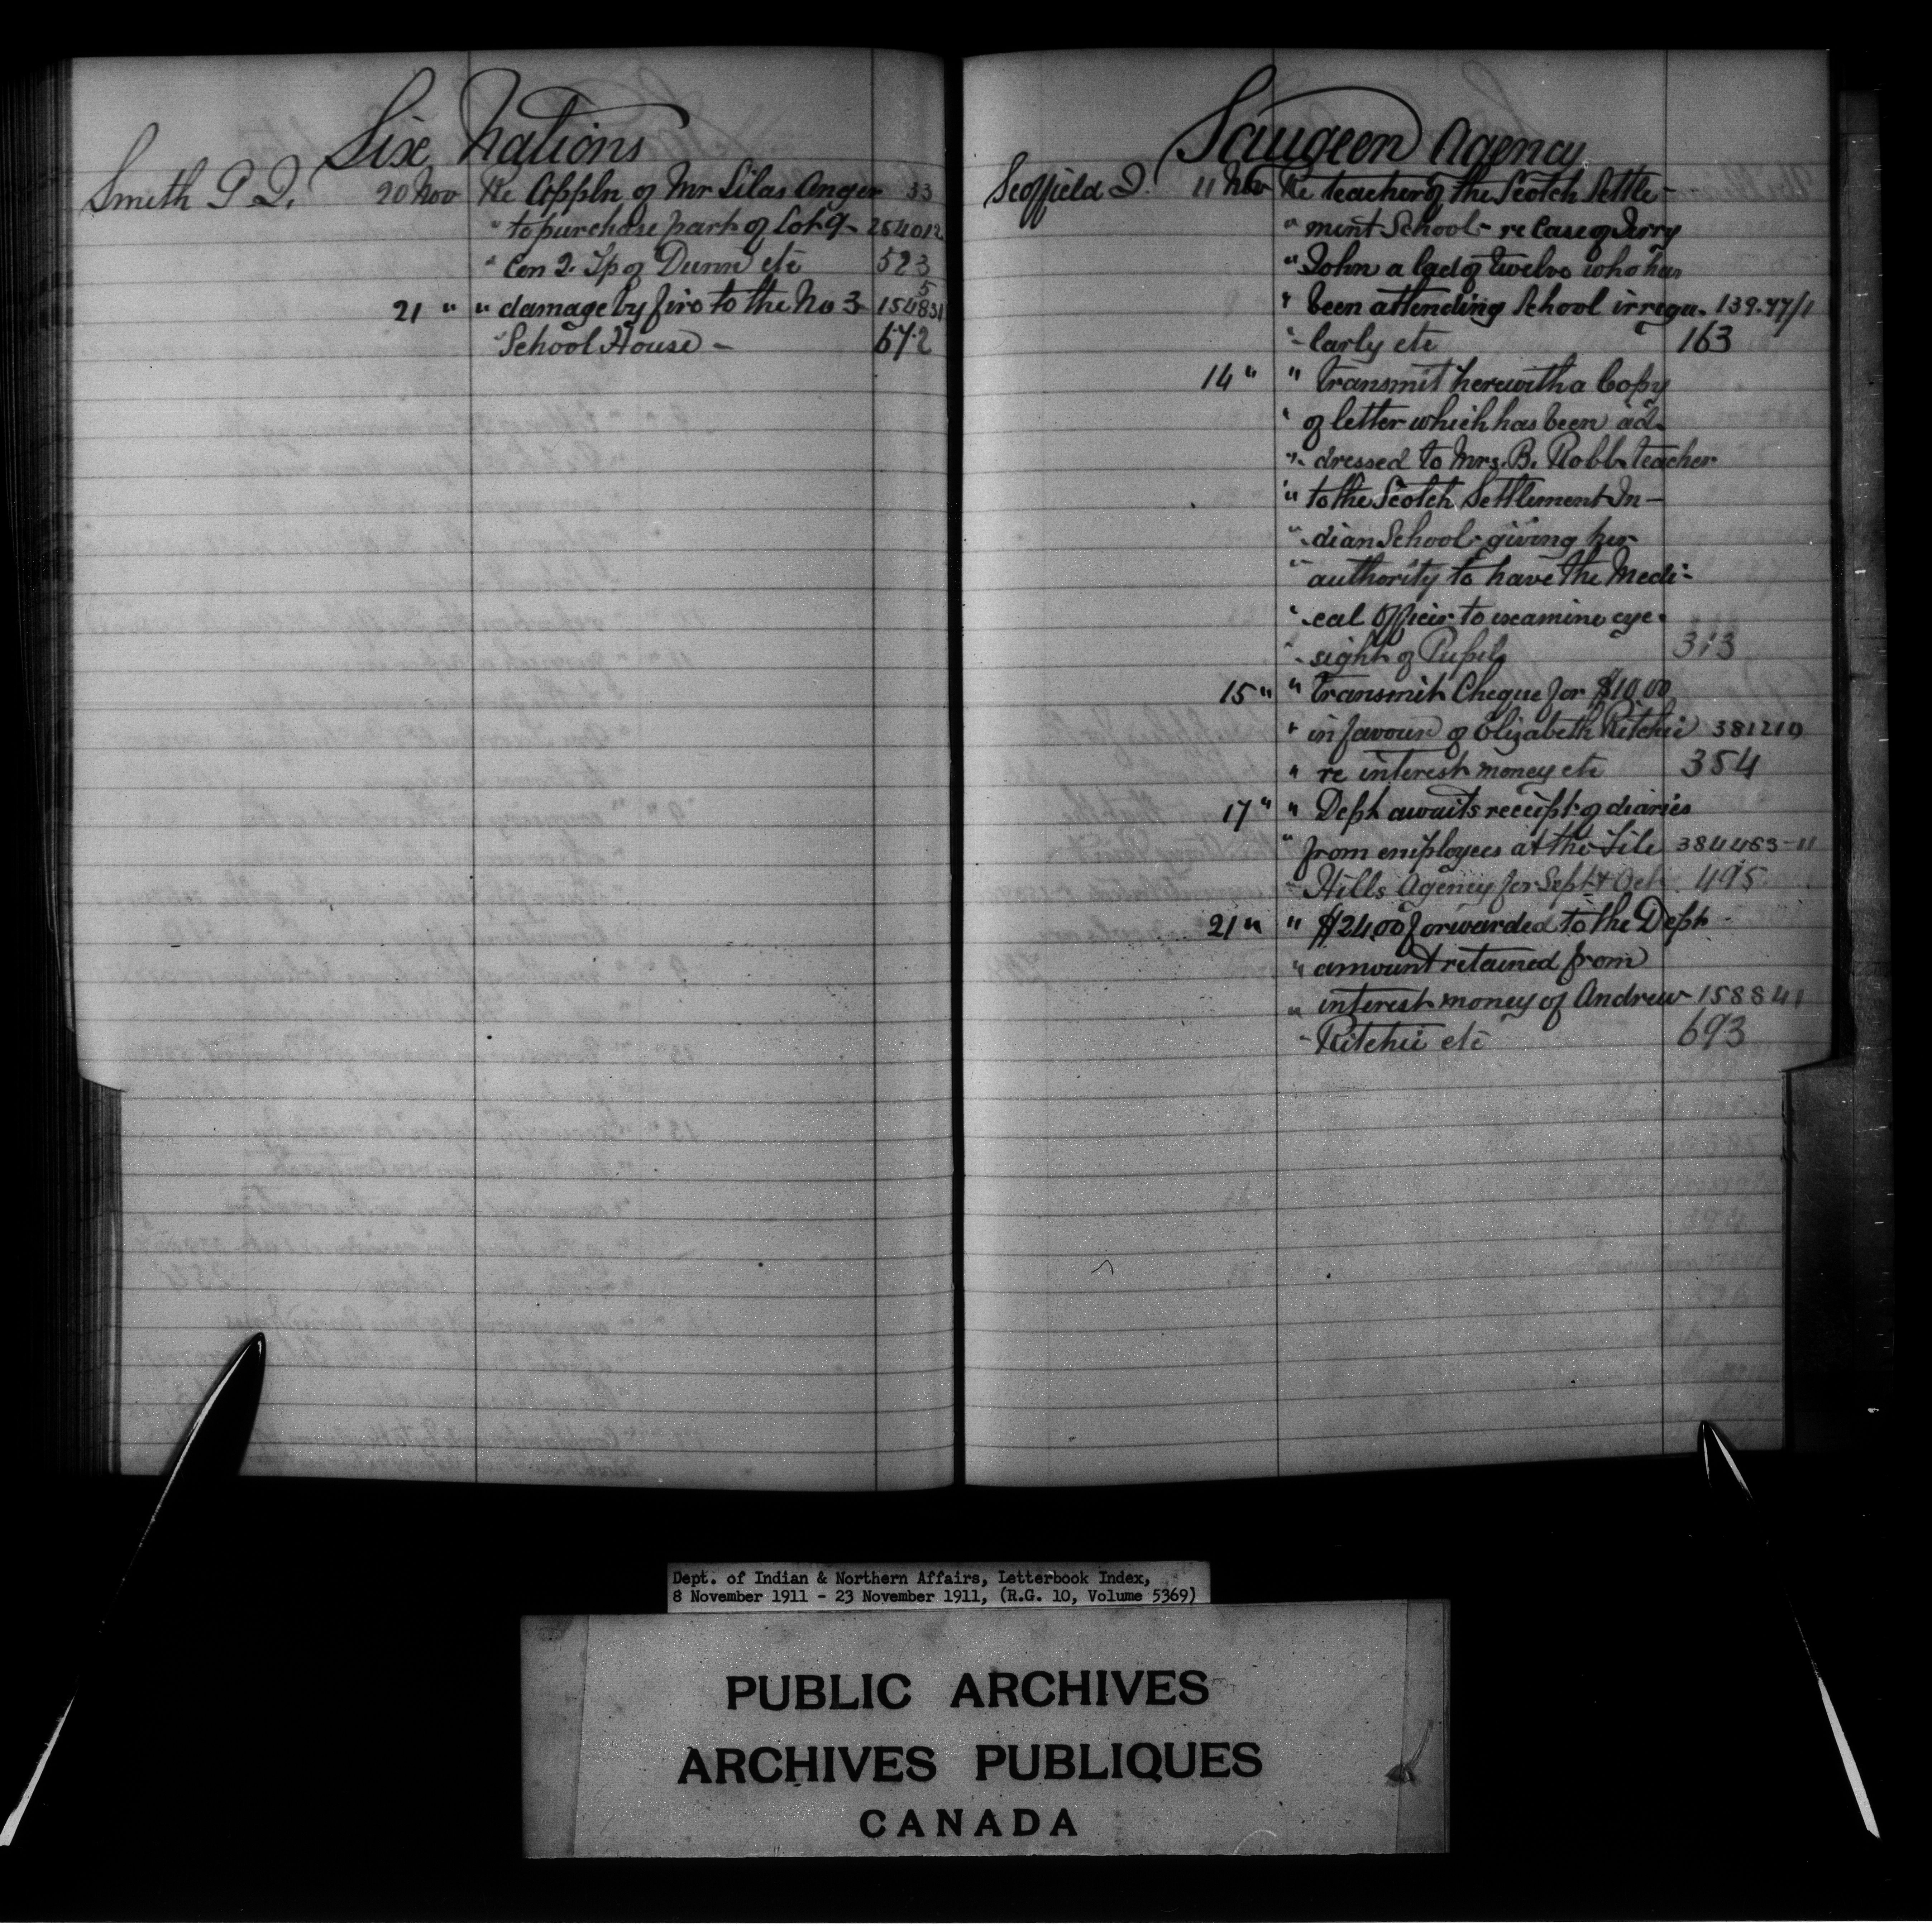 Six Nations
Smith G. J. 20 Nov Re Appln of Mr Silas Anger 33
" to purchase part of Lot 9 - 254012
" Con 2. Tp of Dunn etc 523
5
21 " " damage by fire to the No 3 154831
" School House - 672
Saugeen Agency
Scoffield J. 11 Nov Re teacher of the Scotch Settle-
" ment School - re Case of Jerry
" John a lad of twelve who has
" been attending School irregu- 139-47/1
" larly etc 163
14 " " transmit herewith a Copy
" of letter which has been ad-
" dressed to Mrs. B. Robb teacher
" to the Scotch Settlement In-
" dian School - giving her
" authority to have the Medi-
" cal Officer to examine eye-
" sight of Pupils 313
15 " " transmit Cheque for $10.00
" in favour of Elizabeth Ritchie 381219
" re interest money etc 354
17 " " Dept awaits receipt of diaries
" from employees at the File 384483-11
" Hills Agency for Sept & Oct. 495
21 " " $24.00 forwarded to the Dept -
" amount retained from
" interest money of Andrew 158841
" Ritchie etc 693
Dept. of Indian & Northern Affairs, Letterbook Index,
8 November 1911 - 23 November 1911, (R.G. 10, Volume 5369)
PUBLIC ARCHIVES
ARCHIVES PUBLIQUES
CANADA